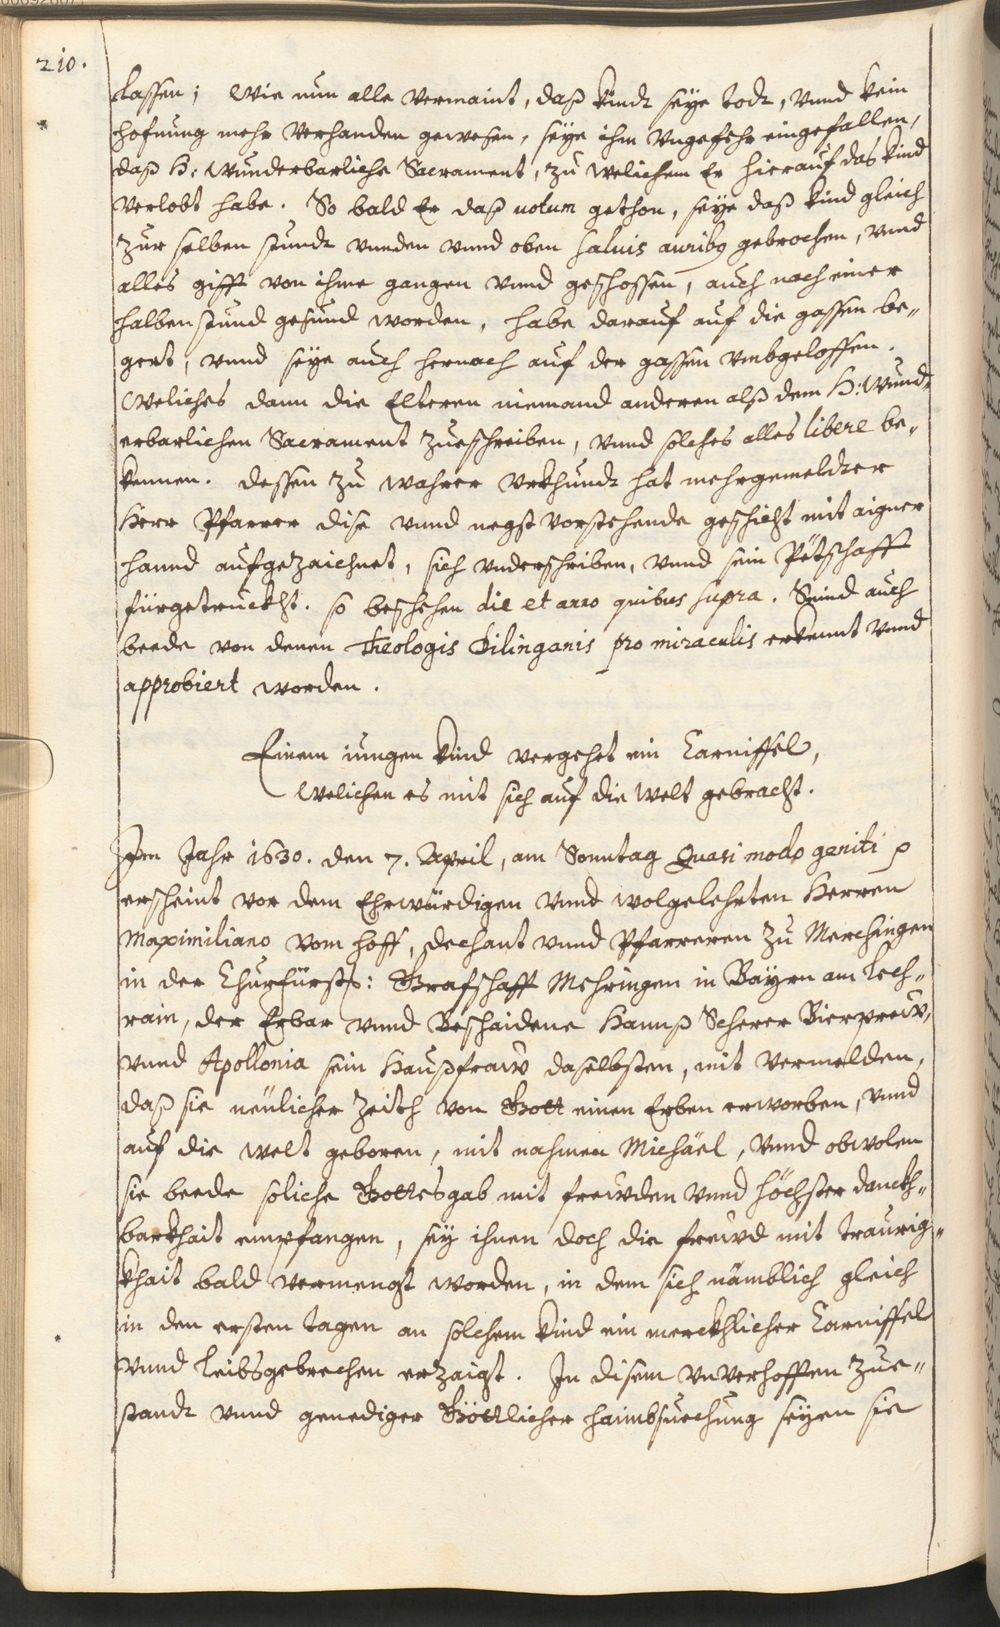 210.
lassen; Wie nun alle vermaint, daß kindt seye todt, vnnd kein
hofnung mehr verhanden gewesen, seye ihm vngefehr eingefallen,
daß H: Wunderbarliche Sacrament, zu welichem Er hierauf das kind
verlobt habe. So bald Er daß uotum gethon, seye daß kind gleich
zur selben stundt vnnden vnnd oben saluis auribus gebrochen, vnnd
alles gifft von ihme gangen vnnd geschossen, auch nach einer
halben stund gesund worden, habe darauf auf die gassen be„
gert, vnnd seye auch hernach auf der gassen vmbgeloffen.
Weliches dann die Elteren niemand anderen alß dem H: Wund„
erbarlichen Sacrament zueschreiben, vnnd solches alles libere be„
kennen. dessen zu wahrer vrkhundt hat mehrgemeldter
Herr Pfarrer dise vnnd negst vorstehende geschicht mit aigner
hannd aufgezaichnet, sich vnderschriben, vnnd sein Petschafft
fürgetruckht. so beschehen die et anno quibus supra. Seind auch
beede von denen Theologis Dilinganis pro miraculis erkennt vnnd
approbiert worden.
Einem jungen kind vergehet ein Carniffel,
welichen es mit sich auf die welt gebracht.
Im Jahr 1630. den 7. April, am Sonntag Quasi modo geniti p
erscheint vor dem Ehrwürdigen vnnd wolgelehrten Herren
Maximiliano vom hoff, dechant vnnd Pfarreren zu Merchingen
in der Churfürstl: Grafschafft Mehringen in Bayrn am Lech„
rain, der Erbar vnnd Beschaidene Hannß Scherer Bierprew,
vnnd Apollonia sein Haußfraw daselbsten, mit vermelden,
daß sie neulicher zeith von Gott einen Erben erworben, vnnd
auf die welt geboren, mit nahmen Michäel, vnnd obwolen
sie beede soliche Gottesgab mit frewden vnnd höchster danckh„
barkhait empfangen, sey ihnen doch die frewd mit traurig„
khait bald vermengt worden, in dem sich nämblich gleich
in den ersten tagen an solchem kind ein merckhlicher Carniffel
vnnd leibsgebrechen erzaigt. In disem vnverhofften zue„
standt vnnd genediger Göttlicher haimbsuechung seyen sie